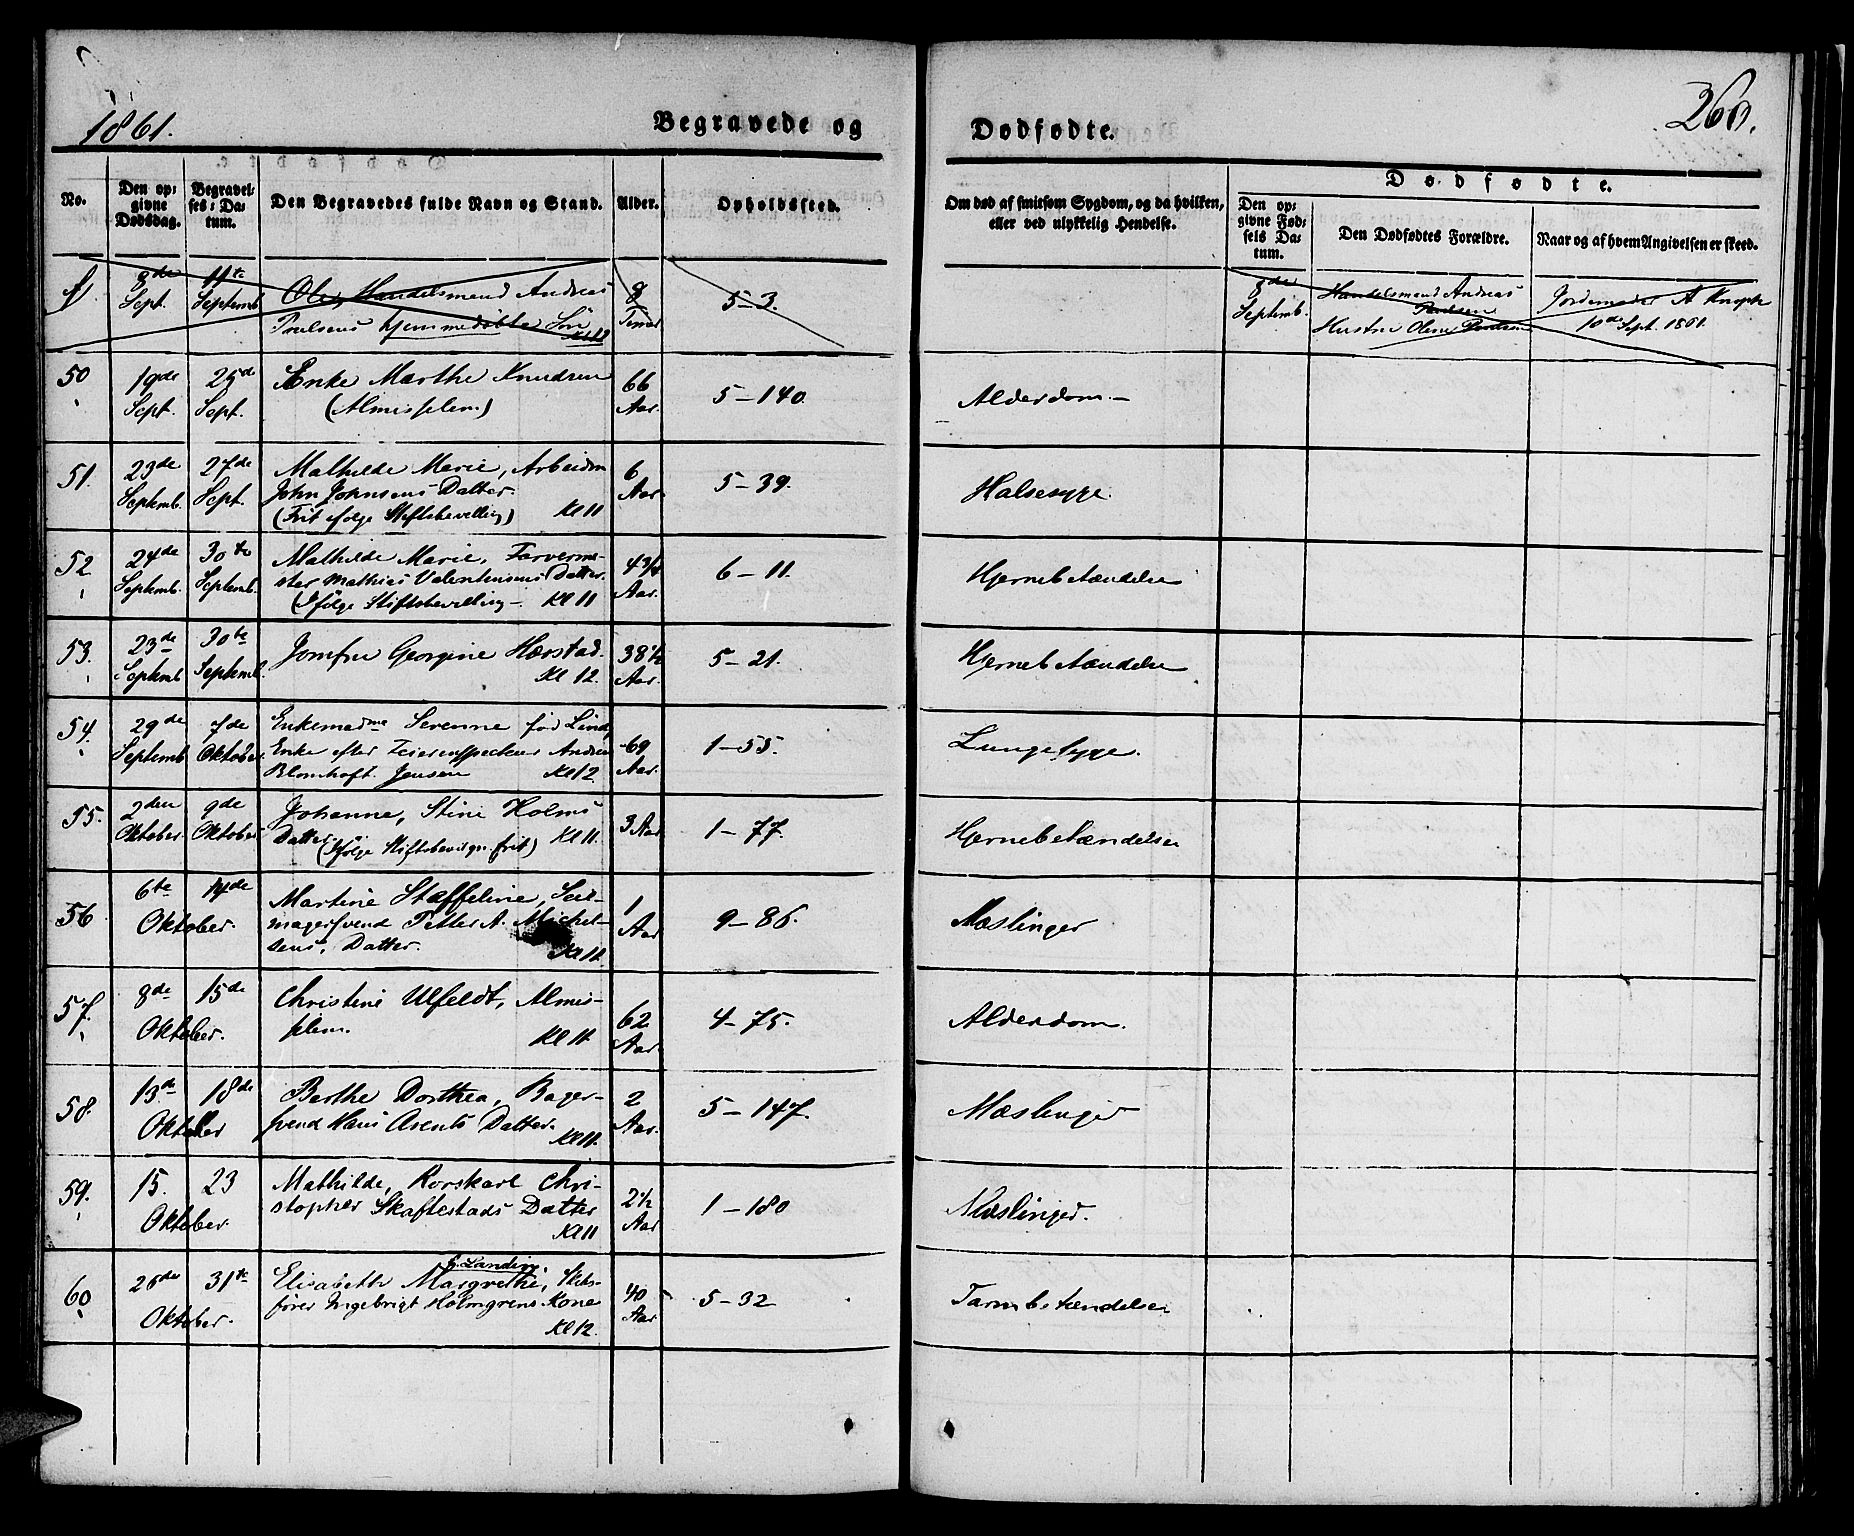 1861.
Begravede og
Dødfødte.
260.
No.
Den op:
givne
Dødsdag.
Begravel:
ses: Da:
tum.
Den Begravedes fulde Navn og Stand.
Alder.
Opholdssted.
Om død af smitsom Sygdom, og da hvilken,
eller ved ulykkelig Hendelse.
Dødfødte.
Den op:
givne Fød:
sels Da:
tum.
Den Dødfødtes Forældre.
Naar og af hvem Angivelsen er skeed.
8de
Sept.
11te
Septemb.
Ole, Handelsmand Andreas
Poulsens hjemmedøbte Søn
Kl 12
8
Timer
5-3.
8de
Septemb.
Handelsmand Andreas
Poulsen
Hustru Oline Poulsen
Jordemoder A Knoph
10de Sept. 1861.
50
19de
Sept.
25de
Sept.
Enke Marthe Knudsen
(Almisslem.)
66
Aar.
5-140.
Alderdom.-
51.
23de
Septemb.
27de
Sept.
Mathilde Marie, Arbeidsm
John Johnsens Datter.
(Frit ifølge Stiftsbevilling) Kl 11
6
Aar.
5-39.
Halsesyge.
52
24de
Septemb.
30te
Septemb.
Mathilde Marie, Farverme-
ster Mathias Valentinsens Datter.
(Ifølge Stiftsbevilling- Kl 11
4 3/4
Aar.
6-11.
Hjernebetændelse
53.
23de
Septemb
30te
Septemb.
Jomfru Georgine Harstad.
Kl 12.
38 1/2
Aar.
5-21.
Hjernebetændelse
54.
29de
Septemb
7de
Oktober.
Enkemadme Serenne fød Lind,
Enke efter Teierinspecteur Andreas
Blomhoft Jensen Kl 12.
69
Aar.
1-55.
Lungesyge.
55.
2den
Oktober.
9de
Oktober
Johanne, Stine Holms
Datter (ifølge Stiftsbevilgn. frit) Kl 11.
3 Aar
1-77.
Hjernebetændelse
56
6te
14de
Oktober.
Martine Stæffeline, Seil-
magersvend Petter A. Michel-
sens, Datter.
Kl 11.
1
Aar
9-86.
Mæslinger
57.
8de
15de
Oktober.
Christine Ulfeldt, Almis-
slem.
Kl 11.
62
Aar.
4-75.
Alderdom.
58.
13de
18de
Oktober
Berthe Dorthea, Bager-
svend Hans Arents Datter.
Kl 11.
2
Aar.
5-147.
Mæslinger
59.
15.
23
Oktober.
Mathilde, Rorskarl Chri-
stopher Skaftestads Datter
Kl 11
2 1/2
Aar
1-180
Mæslinger.
60
26de
31te
Oktober.
f. Landin.
Elisabeth Margrethe, Skibs-
fører Ingebrigt Holmgrens Kone
Kl 12.
40
Aar
5-32
Tarmbetændelse